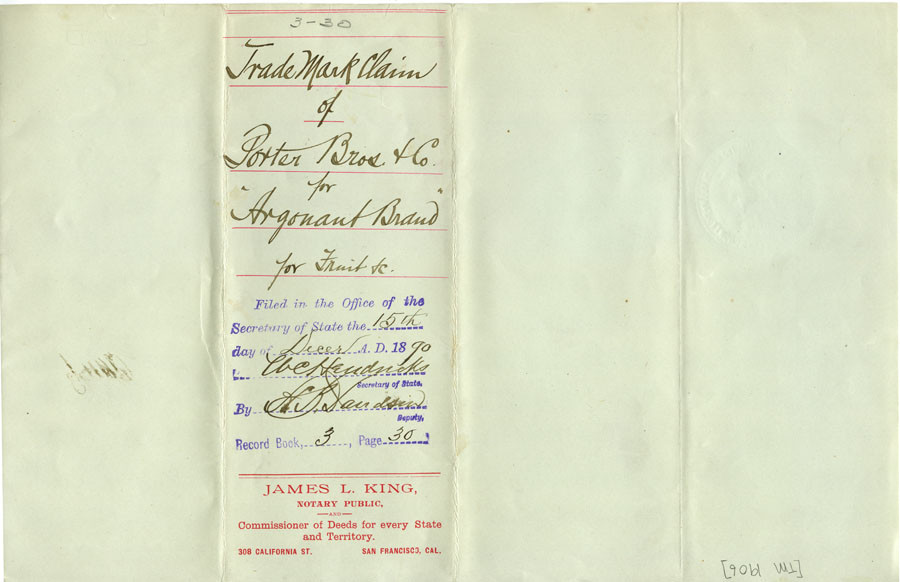 3-30
Trade Mark Claim
of
Porter Bros. & Co.
for
"Argonaut Brand"
for Fruit &c.
Filed in the Office of the
Secretary of State the 15th
day of Decer A. D. 1890
W C Hendricks
Secretary of State.
By
Deputy,
Record Book, 3, Page 30
JAMES L. KING,
NOTARY PUBLIC,
AND
Commissioner of Deeds for every State
and Territory.
308 CALIFORNIA ST. SAN FRANCISCO, CAL.
[TM 1906]